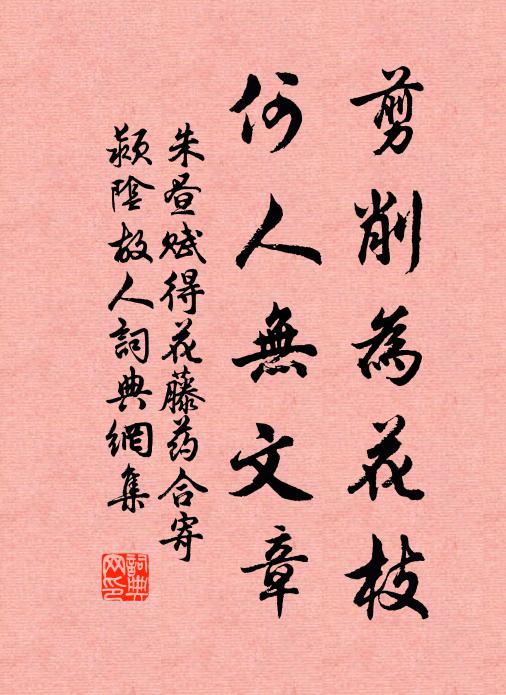 剪削為花枝
何人無文章
朱晝賦得花藤药合寄
颍陰故人詞典網集
詞典网印